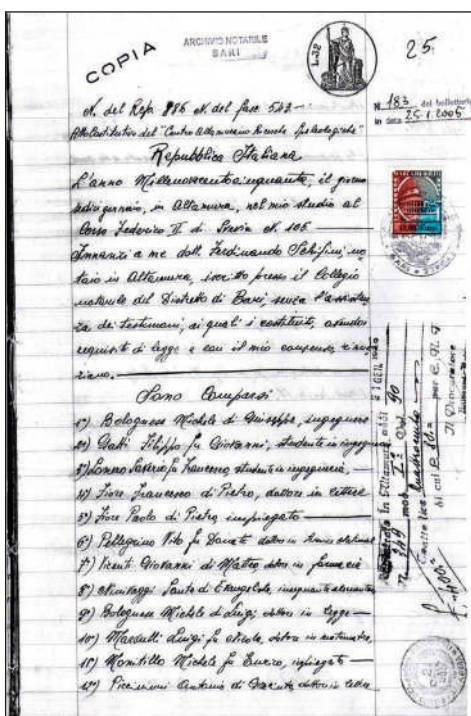 COPIA
ARCHIVIO NOTARILE
BARI
L. 32
25
N. 183 del bollettario
in data 25.1.2005
N. del Rep. 886 N. del fasc. 562
Atto Costitutivo del "Centro Altamurano Ricerche Speleologiche"
Repubblica Italiana
L'anno Millenovecentocinquanta, il giorno
sedici gennaio, in Altamura, nel mio studio al
Corso Federico II di Svevia N. 105
Innanzi a me dott. Ferdinando Schifini, no
taio in Altamura, iscritto presso il Collegio
notarile del Distretto di Bari, senza l'assisten
za dei testimoni, ai quali i costituiti, avendo
requisiti di legge e con il mio consenso, rinun
ziano.
Sono Comparsi
1°) Bolognese Michele di Giuseppe, ingegnere
2°) Gatti Filippo fu Giovanni, studente in ingegneria
3°) Saverio fu Francesco studente in ingegneria,
4°) Fiore Francesco di Pietro, dottore in lettere
5°) Fiore Paolo di Pietro impiegato
6°) Pellegrino Vito fu Donato dottore in
7°) Vicenti Giovanni di Matteo dottore in farmacia
8°) Santo di Evangelista, insegnante elementare
9°) Bolognese Michele di Luigi, dottore in legge
10°) Mardulli Luigi fu Nicola, dottore in matematica,
11°) Montillo Michele fu impiegato
12°) Piccininni Antonio di dottore in
in Altamura
N. 319 mod. I° Vol. 90
Il Procuratore